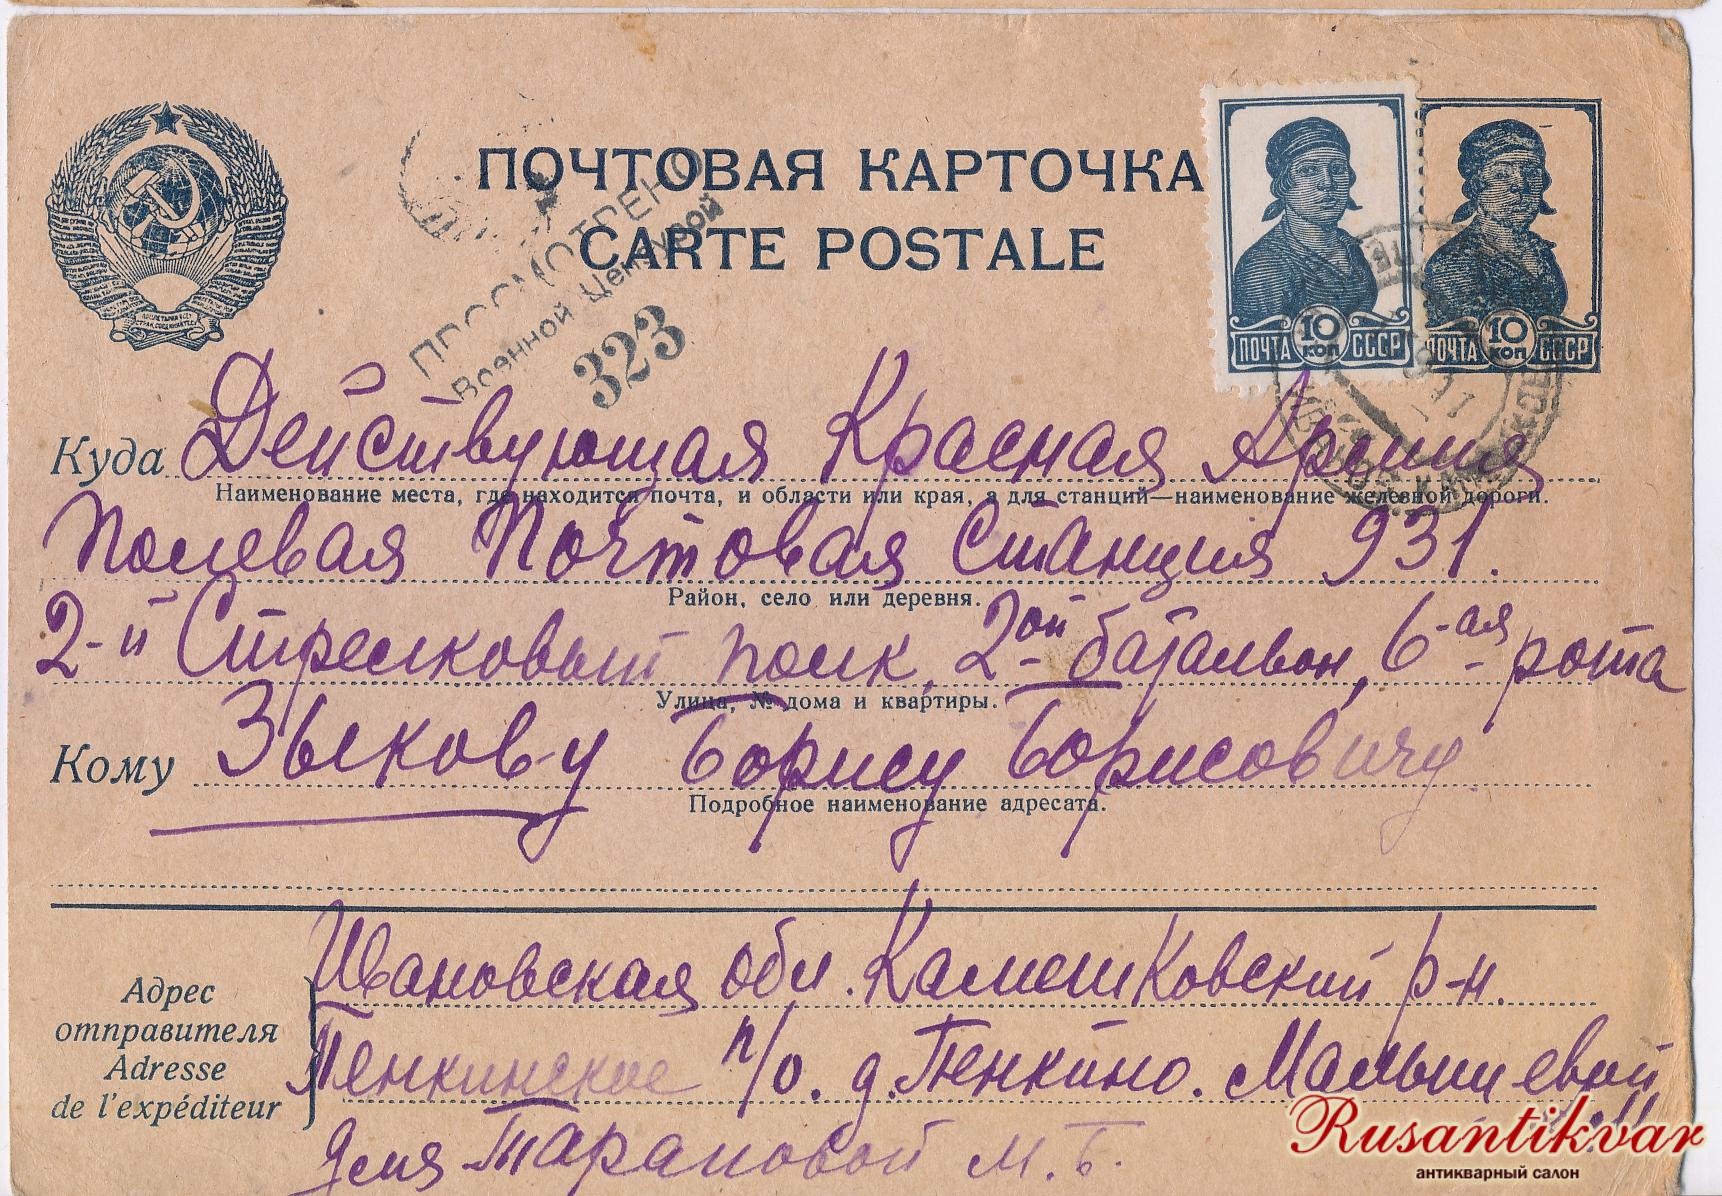 ПОЧТОВАЯ КАРТОЧКА
CARTE POSTALE
ПРОСМОТРЕНО
Военной Цензурой
323
10 КОП
ПОЧТА СССР
10 КОП
ПОЧТА СССР
Куда Действующая Красная Армия
Наименование места, где находится почта, и области или края, а для станций—наименование железной дороги.
Полевая Почтовая Станция 931.
Район, село или деревня.
2-й Стрелковый полк, 2ой батальон, 6-ая рота
Улица, № дома и квартиры.
Кому Зыков-у Борису Борисовичу
Подробное наименование адресата.
Адрес отправителя
Adresse de l'expéditeur
Ивановская обл. Камешковский р-н.
Пенкинское п/о. д. Пенкино. Малышевой
для Тарановой М. Б.
Rusantikvar
антикварный салон